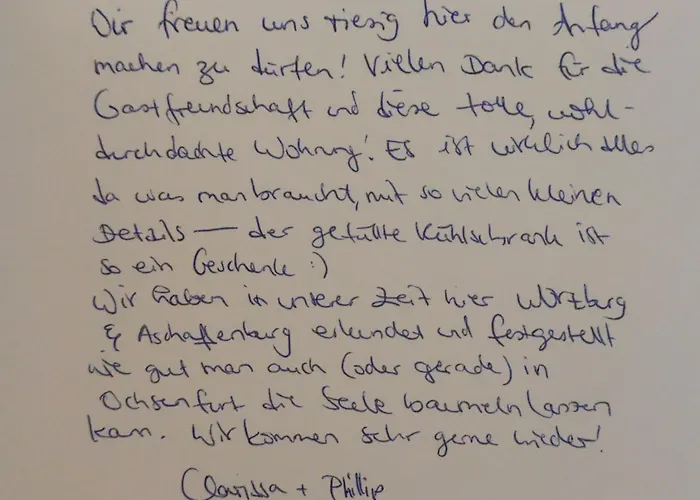 Wir freuen uns riesig hier den Anfang
machen zu dürfen! Vielen Dank für die
Gastfreundschaft und diese tolle, wohl-
durchdachte Wohnung! Es ist wirklich alles
da was man braucht, mit so vielen kleinen
Details — der gefüllte Kühlschrank ist
so ein Geschenk :)
Wir haben in unserer Zeit hier Würzburg
& Aschaffenburg erkundet und festgestellt
wie gut man auch (oder gerade) in
Ochsenfurt die Seele baumeln lassen
kann. Wir kommen sehr gerne wieder!
Clarissa + Phillip